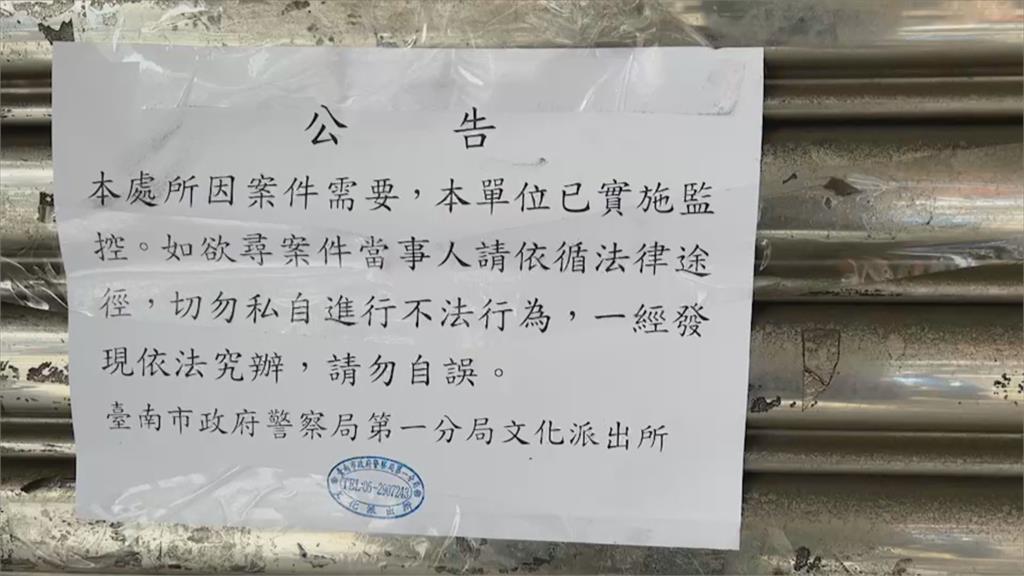 公告
本處所因案件需要，本單位已實施監
控。如欲尋案件當事人請依循法律途
徑，切勿私自進行不法行為，一經發
現依法究辦，請勿自誤。
臺南市政府警察局第一分局文化派出所
臺南市政府警察局第一分局
TEL:06-2907243
文化派出所